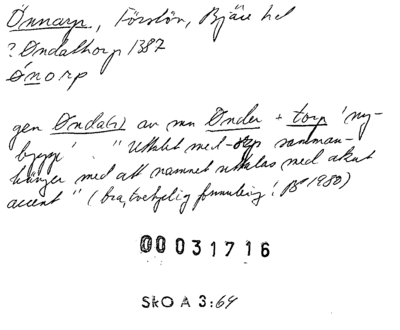 Önnarp, Förslöv, Bjäre hd
? Øndalthorp 1387
Ønorp
gen Ønda(r) av mn Ønder + torp 'ny-
bygge'. "Uttalet med -orp samman-
hänger med att namnet uttalas med akut
accent" (bra, tveydig formulering! 1980)
00031716
SkO A 3:64